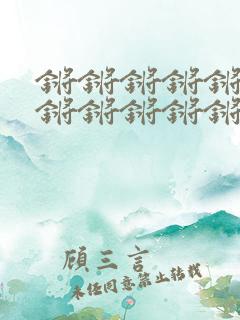 锵锵锵锵锵
锵锵锵锵锵
顾三言
未经同意禁止转载